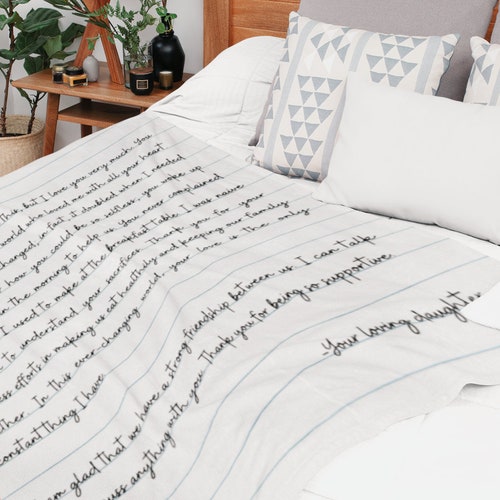 this but I love you very much. You
world who loved me with all your heart
changed, in fact it doubled when I needed
how you could be so selfless, you woke up
in the morning to help us. You never complained
I used to make at the breakfast table. I was naive
to understand your sacrifices. Thank you for your
less efforts in making us eat healthily and keeping our family
ther. In this ever changing world, your love is the only
constant thing I have
am glad that we have a strong friendship between us. I can talk
uss anything with you. Thank you for being so supportive
-Your loving daughter